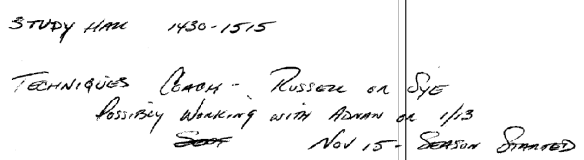 STUDY HALL 1430-1515
TECHNIQUES COACH - RUSSELL OR SYE
POSSIBLY WORKING WITH ADNAN ON 1/13
NOV 15 - SEASON STARTED